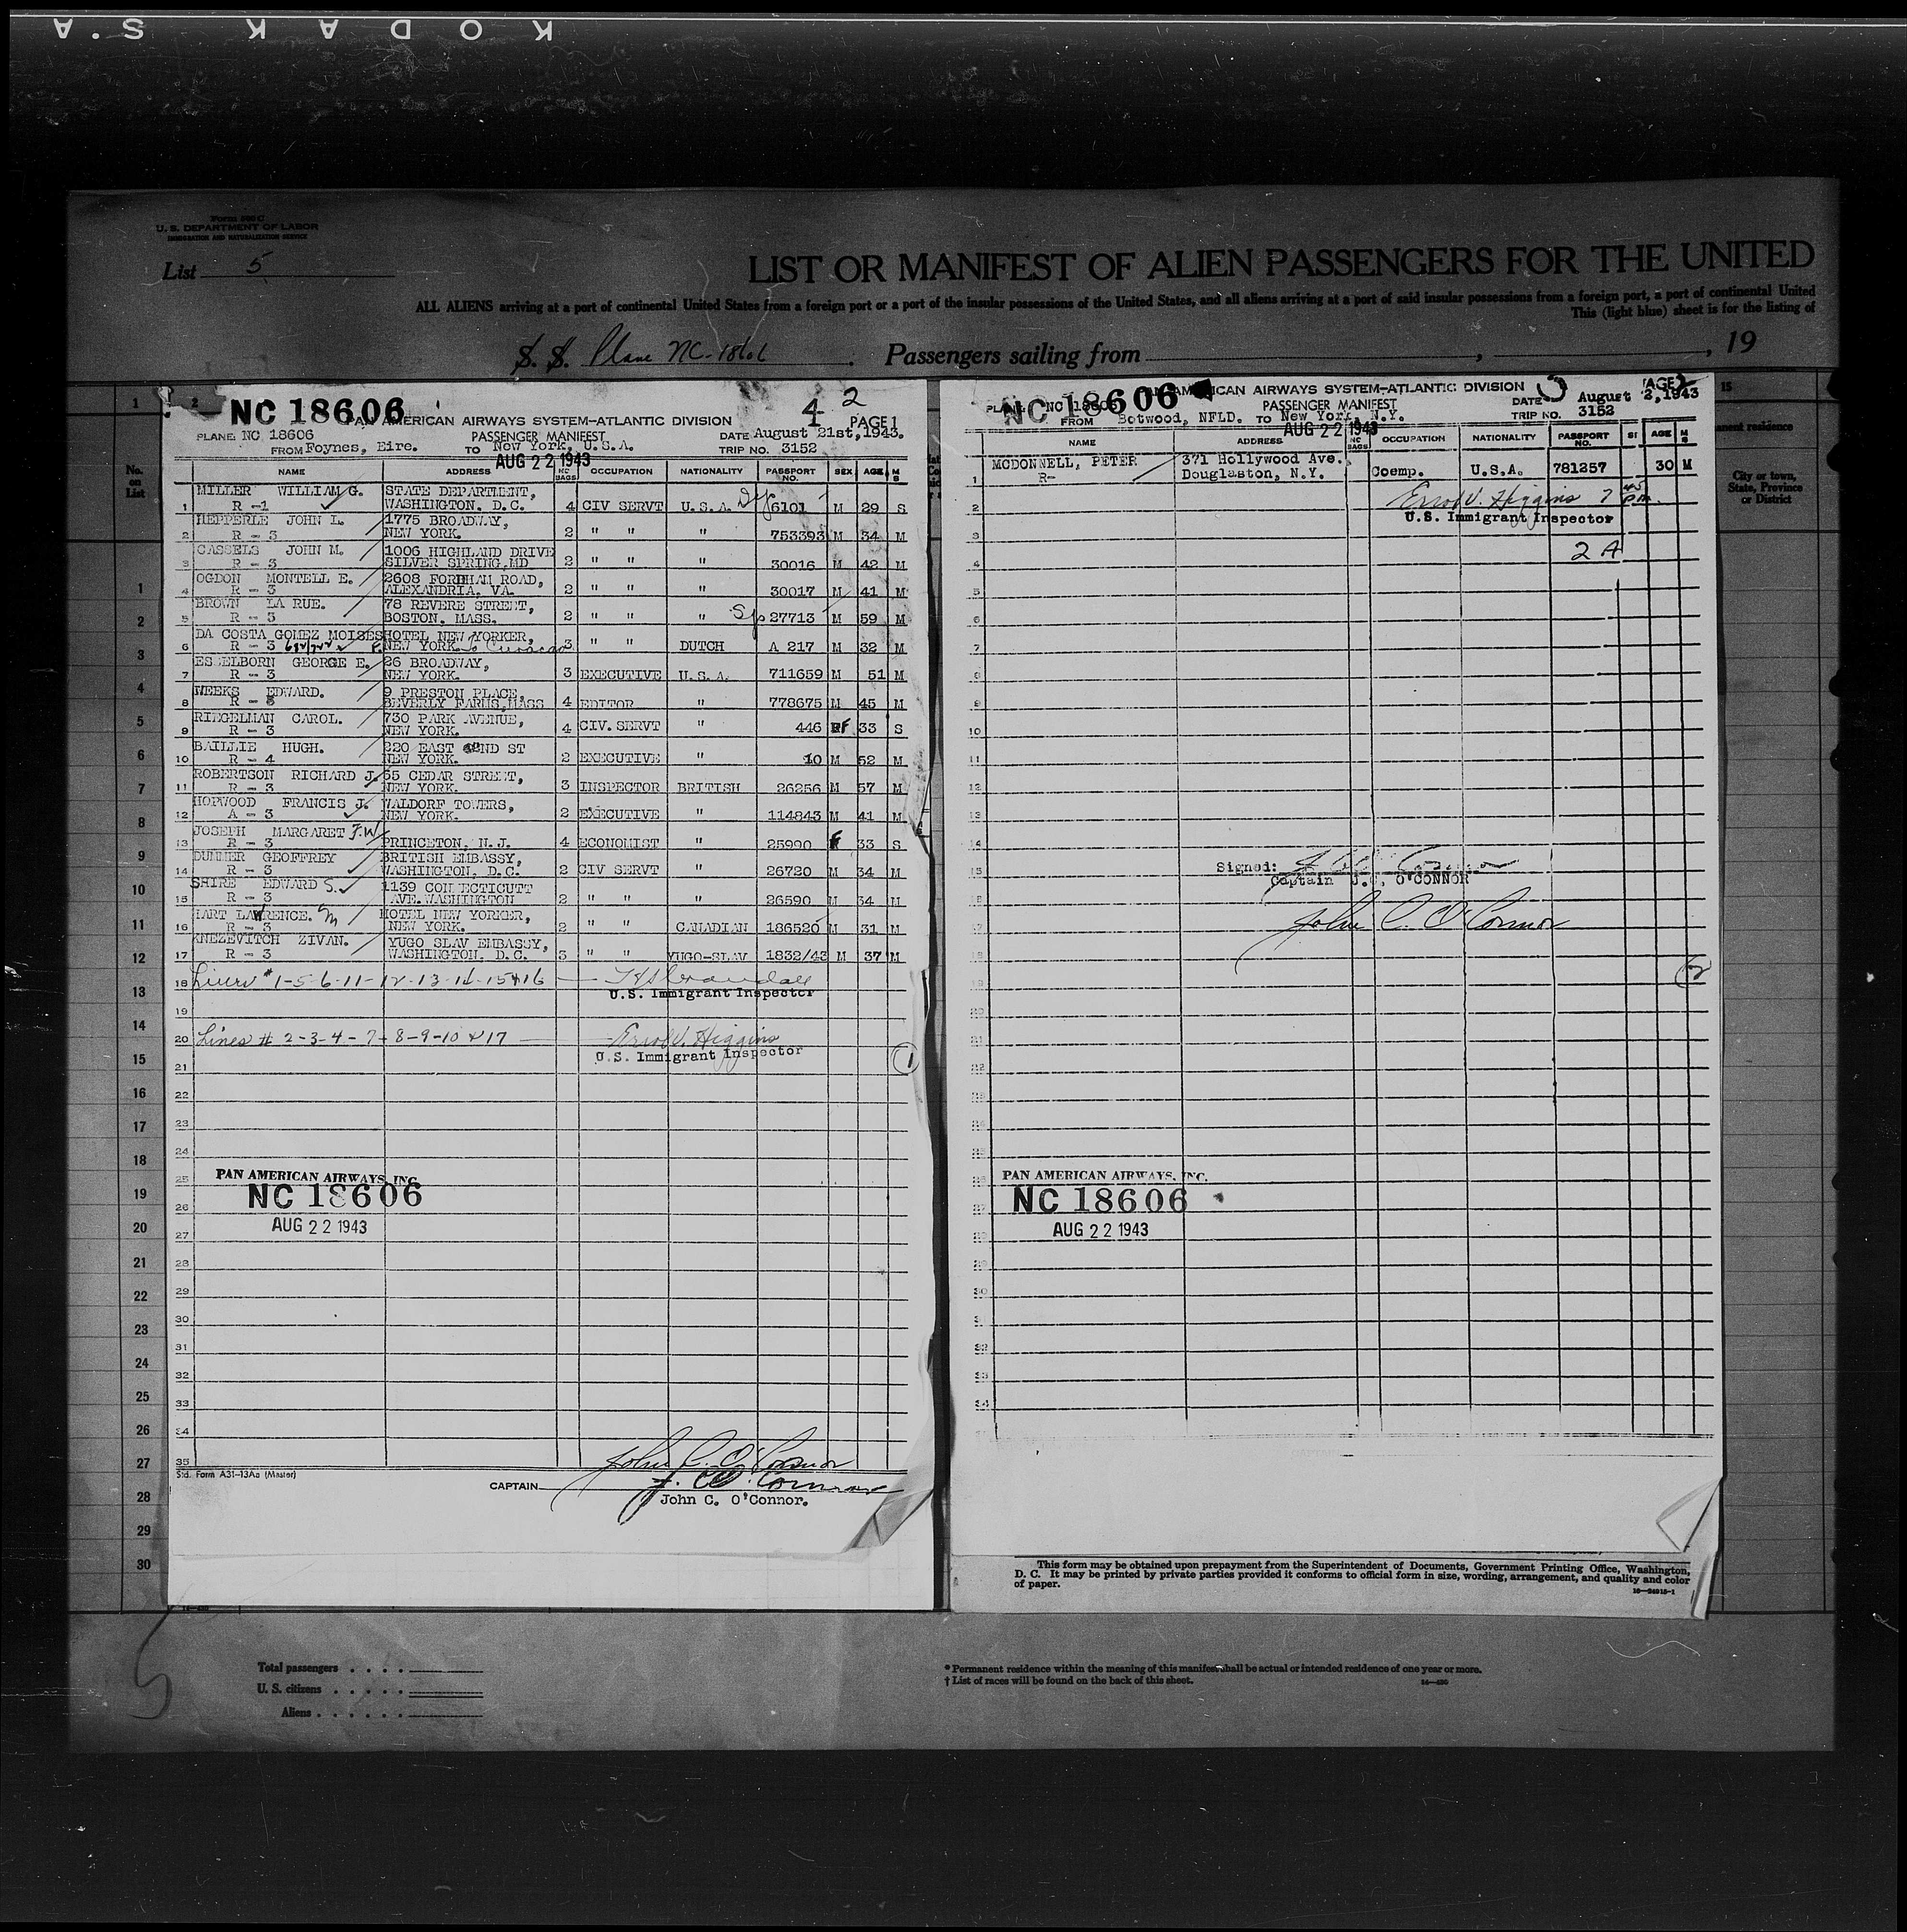 KODAK S.A
Form 500 C
U. S. DEPARTMENT OF LABOR
IMMIGRATION AND NATURALIZATION SERVICE
List 5
LIST OR MANIFEST OF ALIEN PASSENGERS FOR THE UNITED
ALL ALIENS arriving at a port of continental United States from a foreign port or a port of the insular possessions of the United States, and all aliens arriving at a port of said insular possessions from a foreign port, a port of continental United
This (light blue) sheet is for the listing of
S. S. Plane NC-18606. Passengers sailing from , , 19
1 2
No. on List
NC 18606 4 2
PAN AMERICAN AIRWAYS SYSTEM-ATLANTIC DIVISION PAGE 1
PLANE: NC 18606 PASSENGER MANIFEST DATE August 21st, 1943.
FROM Foynes, Eire. TO New York, U.S.A. TRIP NO. 3152
AUG 22 1943
NAME ADDRESS NO BAGS OCCUPATION NATIONALITY PASSPORT NO. SEX AGE M S
1 MILLER WILLIAM G. R -1 STATE DEPARTMENT, WASHINGTON. D.C. 4 CIV SERVT U.S.A. 6101 M 29 S
2 HEPPERLE JOHN L. R - 3 1775 BROADWAY, NEW YORK. 2 " " " 753393 M 34 M
3 CASSELS JOHN M. R - 3 1006 HIGHLAND DRIVE SILVER SPRING.MD 2 " " " 30016 M 42 M
4 OGDON MONTELL E. R - 3 2608 FORDHAM ROAD, ALEXANDRIA. VA. 2 " " " 30017 M 41 M
5 BROWN LA RUE. R - 3 78 REVERE STREET, BOSTON. MASS. 2 " " " Sp 27713 M 59 M
6 DA COSTA GOMEZ MOISES R - 3 HOTEL NEW YORKER, NEW YORK. to Curacao 3 " " DUTCH A 217 M 32 M
7 ESSELBORN GEORGE E. R - 3 26 BROADWAY, NEW YORK. 3 EXECUTIVE U.S.A. 711659 M 51 M
8 WEEKS EDWARD. R - 3 9 PRESTON PLACE, BEVERLY FARMS.MASS 4 EDITOR " 778675 M 45 M
9 RIEGELMAN CAROL. R - 3 730 PARK AVENUE, NEW YORK. 4 CIV. SERVT " 446 F 33 S
10 BAILLIE HUGH. R - 4 220 EAST 42ND ST NEW YORK. 2 EXECUTIVE " 10 M 52 M
11 ROBERTSON RICHARD J. R - 3 55 CEDAR STREET, NEW YORK. 3 INSPECTOR BRITISH 26256 M 57 M
12 HOPWOOD FRANCIS J. A - 3 WALDORF TOWERS, NEW YORK. 2 EXECUTIVE " 114843 M 41 M
13 JOSEPH MARGARET J.W R - 3 PRINCETON. N.J. 4 ECONOMIST " 25990 F 33 S
14 DUNNER GEOFFREY R - 3 BRITISH EMBASSY, WASHINGTON, D.C. 2 CIV SERVT " 26720 M 34 M
15 SHIRE EDWARD S. R - 3 1139 CONNECTICUTT AVE.WASHINGTON 2 " " " 26590 M 34 M
16 HART LAWRENCE. M R - 3 HOTEL NEW YORKER, NEW YORK. 2 " " CANADIAN 186520 M 31 M
17 KNEZEVITCH ZIVAN. R - 3 YUGO SLAV EMBASSY, WASHINGTON. D.C. 3 " " YUGO-SLAV 1832/43 M 37 M
18 Lines # 1-5-6-11-12-13-14-15 & 16
U.S. Immigrant Inspector
19
20 Lines # 2-3-4-7-8-9-10 & 17 Errol V. Higgins
U.S. Immigrant Inspector
1
21
22
23
24
25
26
27
28
29
30
31
32
33
34
35
PAN AMERICAN AIRWAYS, INC.
NC 18606
AUG 22 1943
Std. Form A31-13Aa (Master)
John C. O'Connor
CAPTAIN J. C. O'Connor
John C. O'Connor.
NC 18606
PAN AMERICAN AIRWAYS SYSTEM-ATLANTIC DIVISION PAGE 2
PLANE: NC 18606 PASSENGER MANIFEST DATE August 2,1943
FROM Botwood, NFLD. TO New York, N.Y. TRIP NO. 3152
AUG 22 1943
NAME ADDRESS NO BAGS OCCUPATION NATIONALITY PASSPORT NO. AGE M S
1 MCDONNELL, PETER R- 371 Hollywood Ave. Douglaston, N.Y. Coemp. U.S.A. 781257 30 M
Errol V. Higgins 7 45 P.m.
U.S. Immigrant Inspector
2 A
Signed:
Captain J.C. O'CONNOR
John C. O'Connor
2
PAN AMERICAN AIRWAYS, INC.
NC 18606
AUG 22 1943
15
City or town, State, Province or District
1
2
3
4
5
6
7
8
9
10
11
12
13
14
15
16
17
18
19
20
21
22
23
24
25
26
27
28
29
30
This form may be obtained upon prepayment from the Superintendent of Documents, Government Printing Office, Washington,
D. C. It may be printed by private parties provided it conforms to official form in size, wording, arrangement, and quality and color
of paper.
Total passengers . . . .
U. S. citizens . . . . .
Aliens . . . . . .
* Permanent residence within the meaning of this manifest shall be actual or intended residence of one year or more.
† List of races will be found on the back of this sheet.